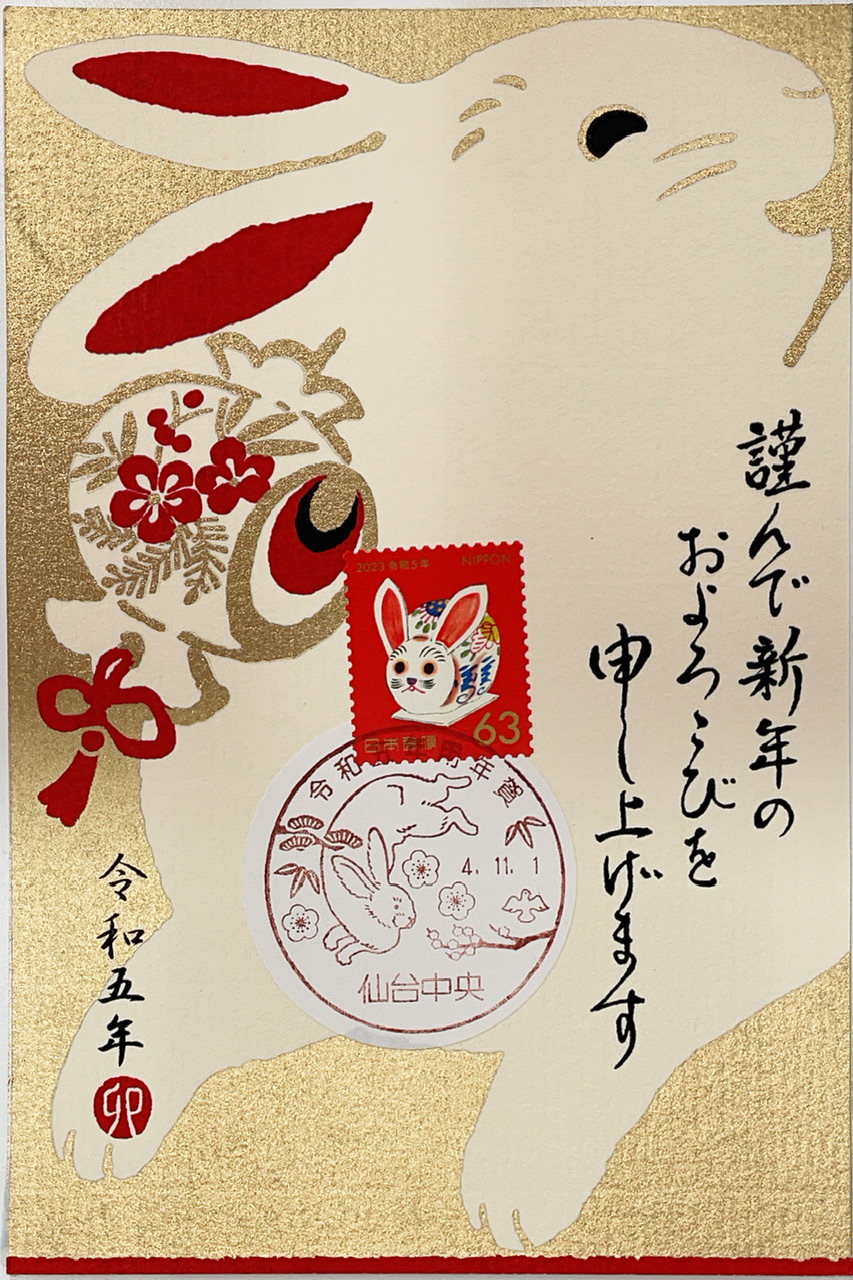 謹んで新年の
およろこびを
申し上げます
2023 令和5年
NIPPON
63
日本郵便
令和
年賀
4.11.1
仙台中央
令和五年
卯